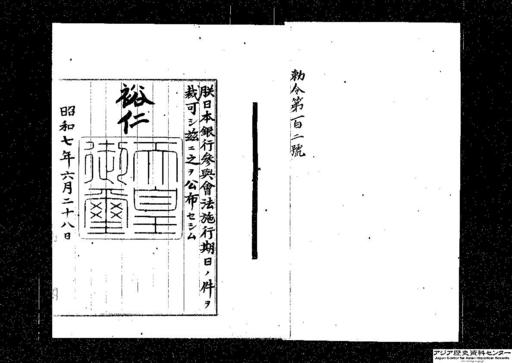 勅令第百二號
朕日本銀行參與會法施行期日ノ件ヲ
裁可シ茲ニ之ヲ公布セシム
裕仁
天皇
御璽
昭和七年六月二十八日
アジア歴史資料センター
Japan Center for Asian Historical Records